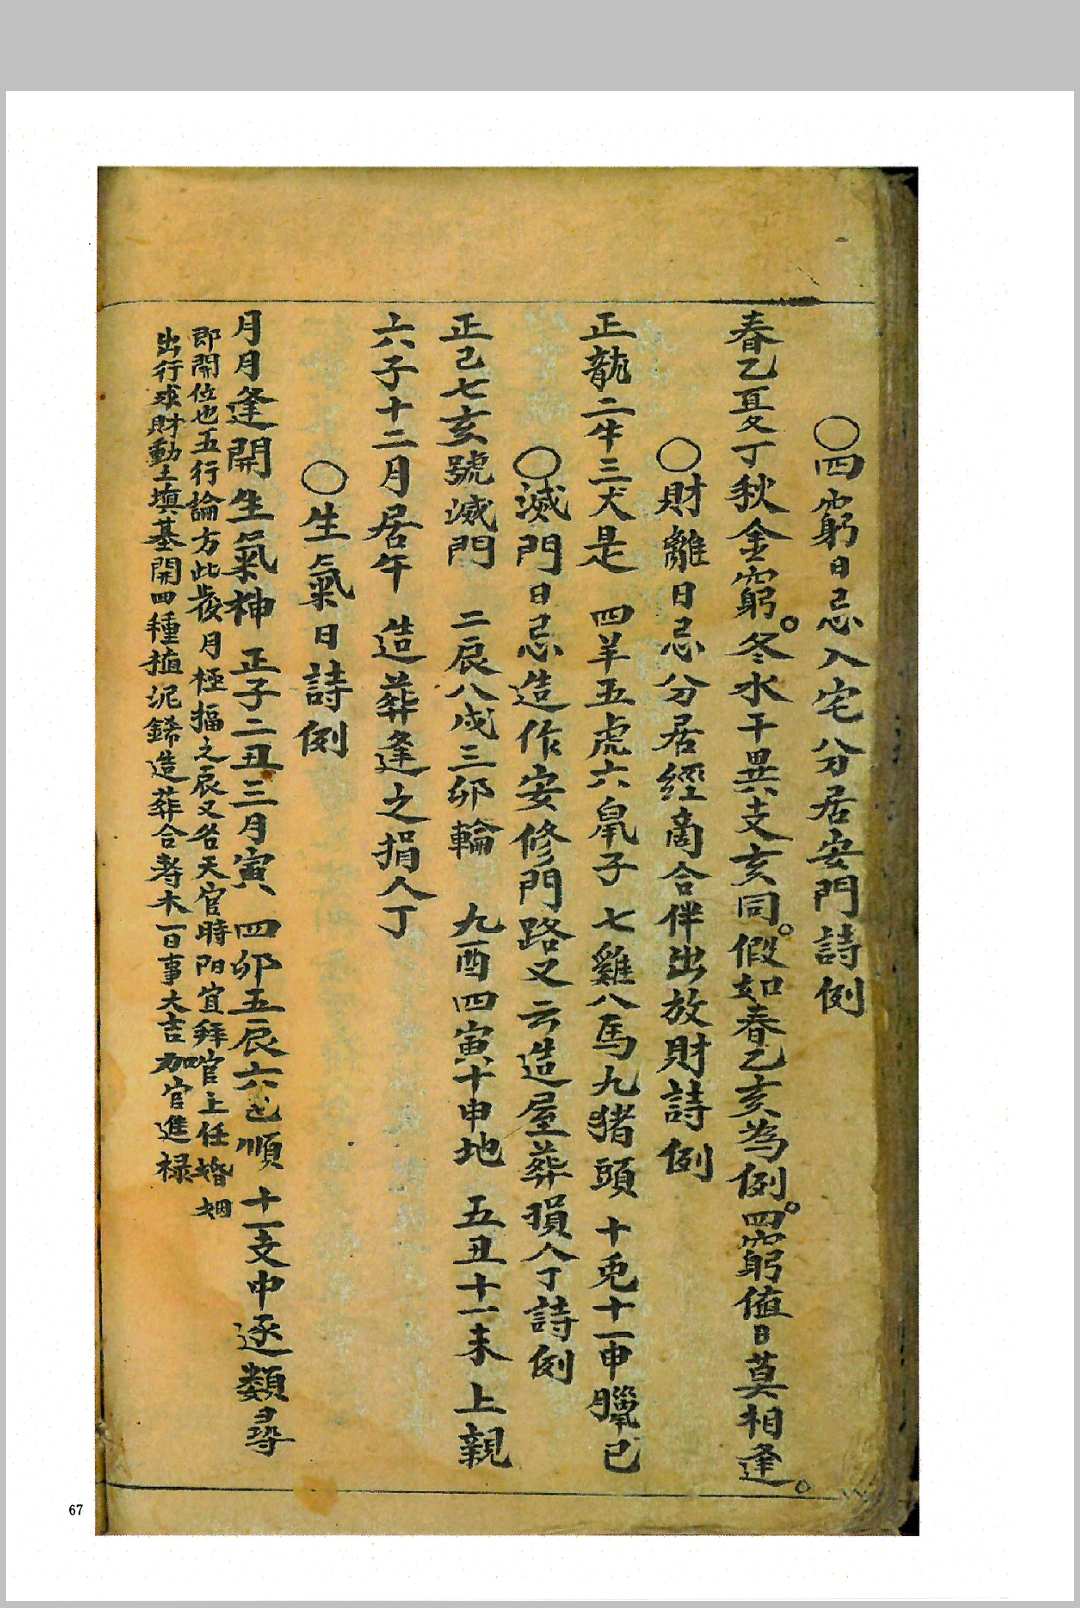 〇四窮日忌入宅分居安門詩例
春乙夏丁秋金窮。冬水干異支亥同。假如春乙亥為例。四窮值日莫相逢。
〇財離日忌分居經商合伴出放財詩例
正龍二牛三犬是 四羊五虎六鼠子 七雞八馬九猪頭 十兎十一申臘已
〇滅門日忌造作安修門路又云造屋葬損人丁詩例
正己七亥號滅門 二辰八戌三卯輪 九酉四寅十申地 五丑十一未上親
六子十二月居午 造葬逢之損人丁
〇生氣日詩例
月月逢開生氣神 正子二丑三月寅 四卯五辰六己順 十一支中逐類尋
即開位也五行論方此後月極福之辰又名天官時阳宜拜官上任婚姻
出行求財動土填基開四種植泥銹造葬合壽木一日事大吉加官進禄
67